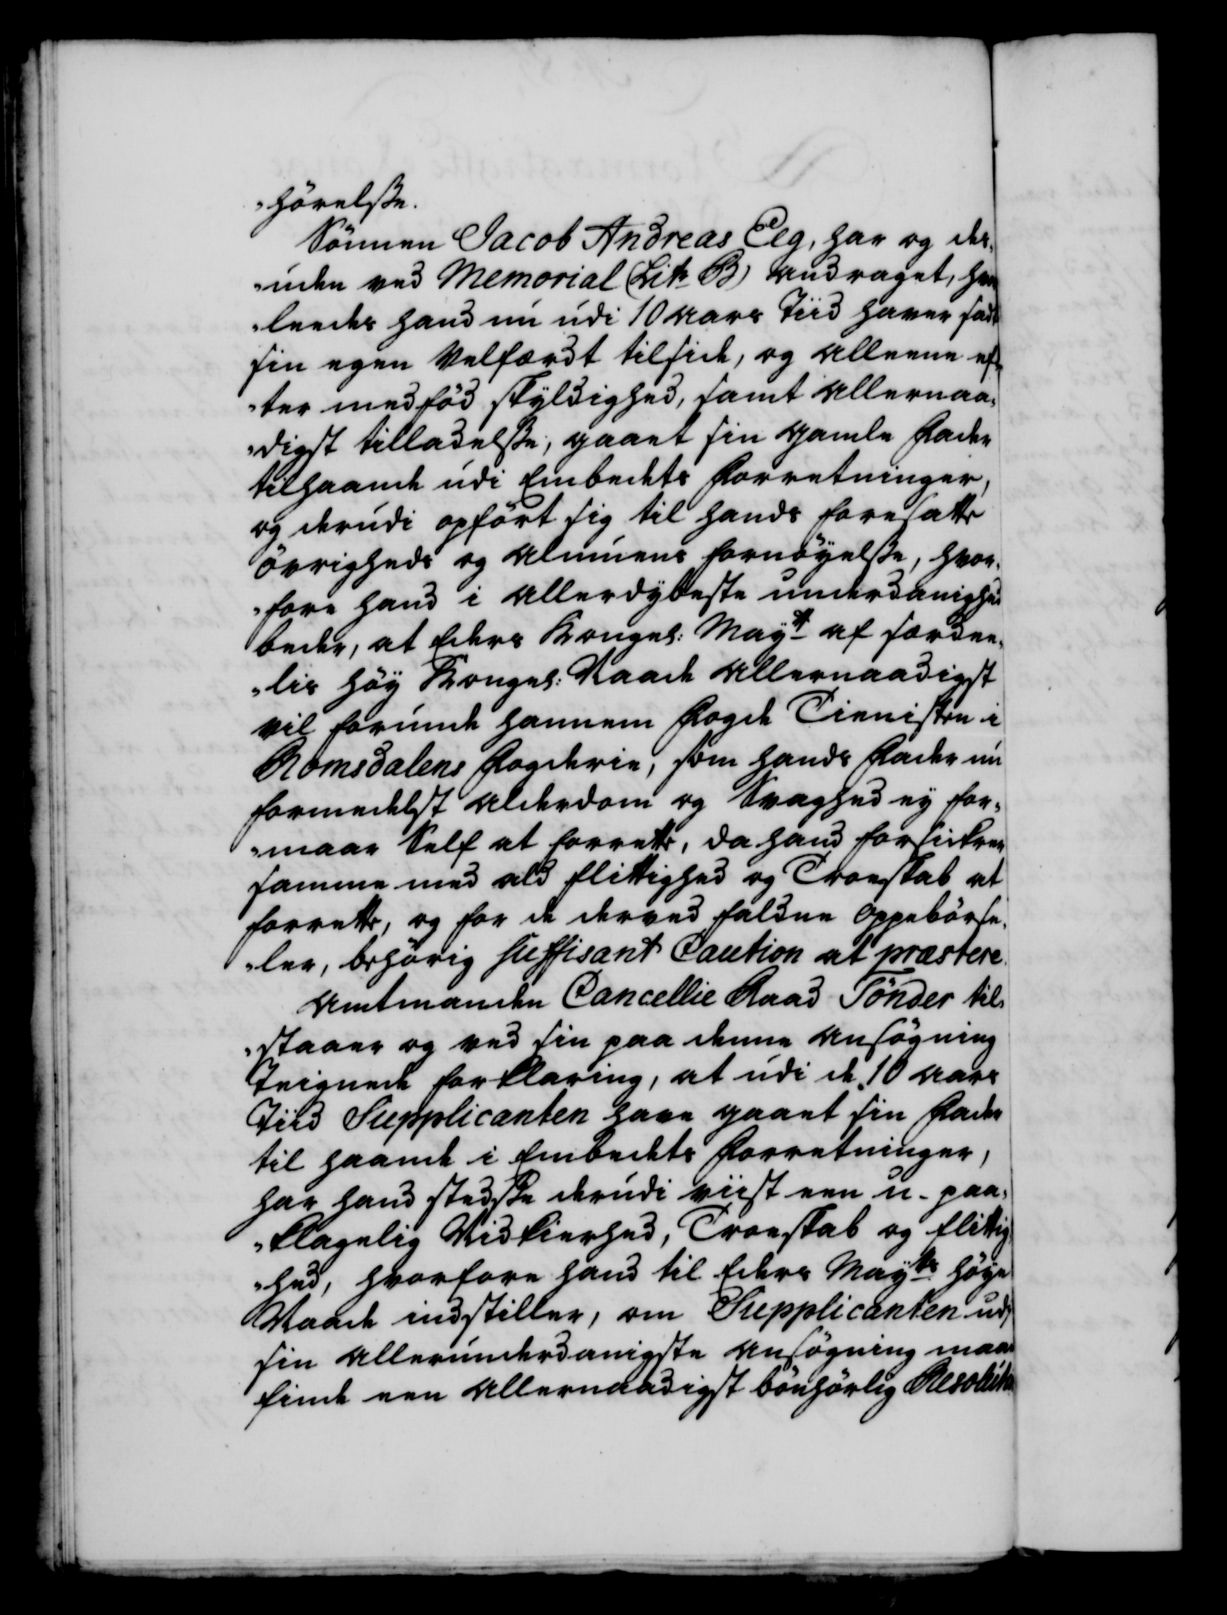 „hörelsse.
Sönnen Jacob Andreas Eeg, har og des„
„uden ved Memorial (Litr B) andraget, hvor
„leedes hand nu udi 10 aars Tiid haver sadt
sin egen Velfærdt tilside, og alleene ef„
„ter medfød skyldighed, samt allernaa„
„digst tilladelsse, gaaet sin gamle Fader
tilhaande udi Embedets Forretninger,
og derudi opført sig til hands foresatte
Øvrigheds og almuens fornöyelsse, hvor„
„fore hand i allerdybeste underdanighed
beder, at Eders Kongel: Mayt af særdee„
„lis höy Kongel: Naade allernaadigst
vil forunde hannem Fogde Tienisten i
Romsdalens Fogderie, som hands Fader nu
formedelst alderdom og Svaghed ey for„
„maar Self at forrette, da hand forsickrer
samme med ald flittighed og Troeskab at
forrette, og for de derved faldne oppebörse„
„ler, behörig suffisant Caution at præstere.
Amtmanden Cancellie Raad Tönder til„
„staaer og ved sin paa denne ansögning
Teignede forklaring, at udi de 10 aars
Tiid Supplicanten have gaaet sin Fader
til haande i Embedets Forretninger,
har hand stedsse derudi viist een u-paa„
„klagelig Vidkierhed, Troeskab og flittig
„hed, hvorfore hand til Eders Mayts höye
Naade indstiller, om Supplicanten udj
sin allerunderdanigste ansögning maae
finde een allernaadigst bönhörlig Resolution